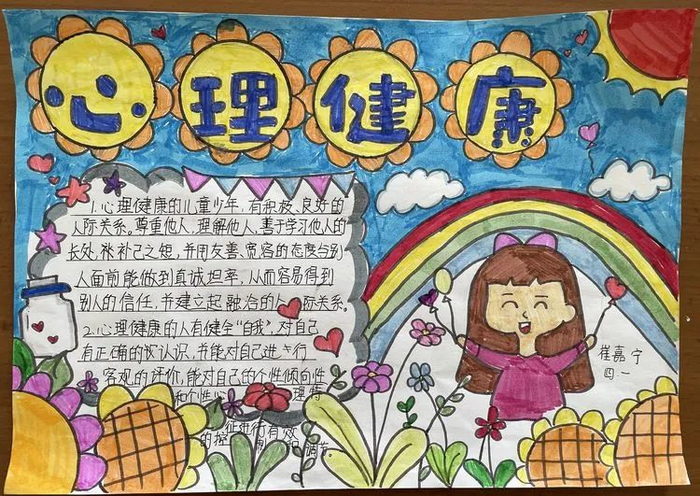 心理健康
1.心理健康的儿童少年,有积极、良好的
人际关系。尊重他人,理解他人,善于学习他人的
长处,补己之短,并用友善、宽容的态度与别
人面前能做到真诚坦率,从而容易得到
别人的信任,并建立起融洽的人际关系。
2.心理健康的人有健全"自我",对自己
有正确的认识,并能对自己进行
客观的评价,能对自己的个性倾向性
和个性心理特
征进行有效
的控 调节。
崔嘉宁
四一